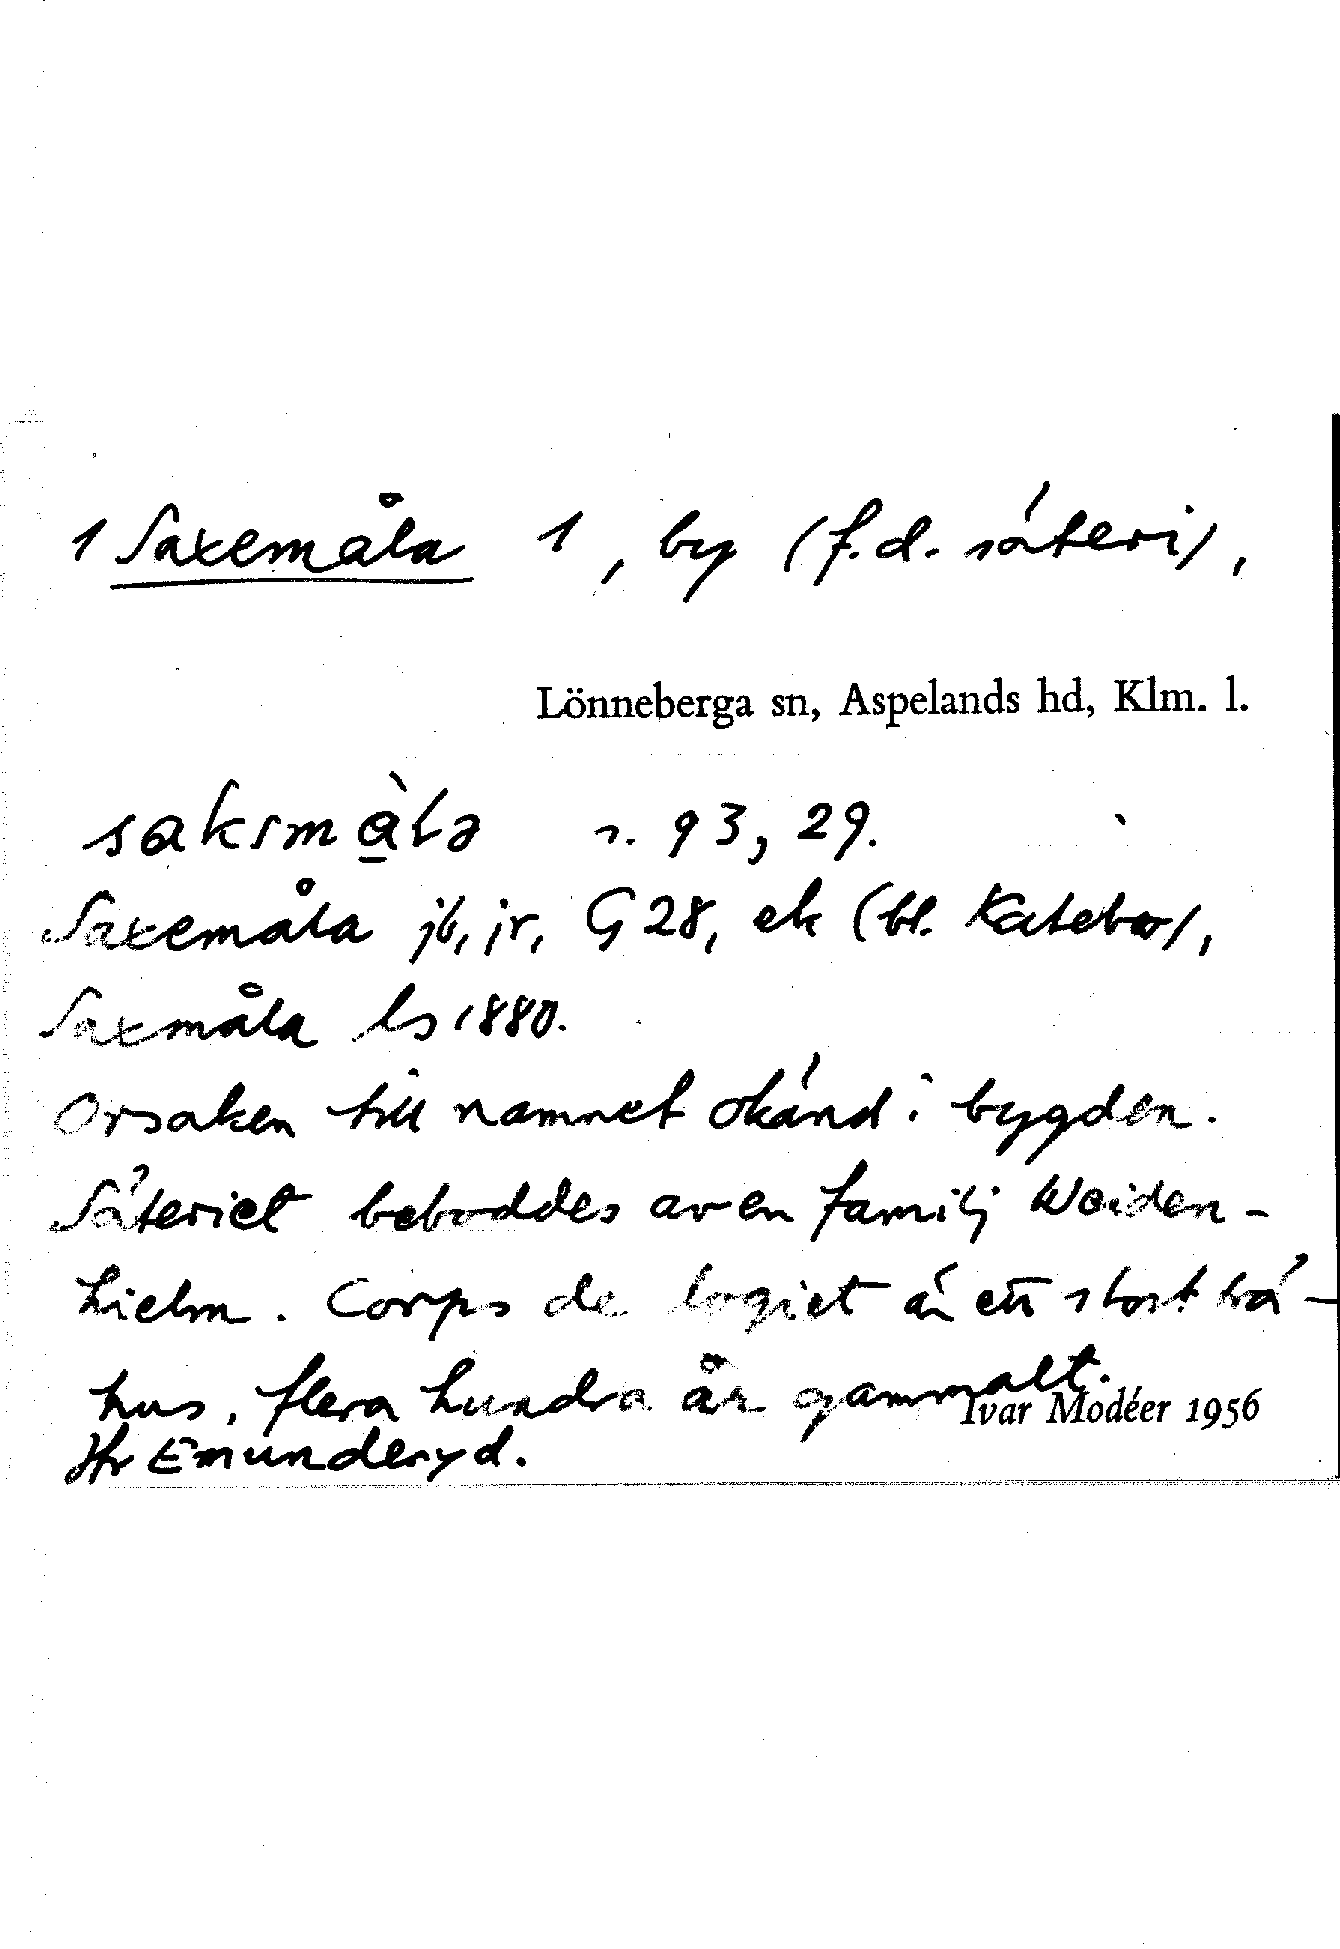 1 Saxemåla 1, by (f.d. säteri),
Lönneberga sn, Aspelands hd, Klm. l.
saksmàla s. 93, 29.
Saxemåla jb, jr, G 28, ek (bl.
Saxmåla ls 1880.
Orsaken till namnet okänd i bygden.
Säteriet beboddes av en familj Weiden-
hielm. Corps de logiet är ett stort trä-
hus, flera hundra år gammalt.
Ivar Modéer 1956
Hr Emunderyd.